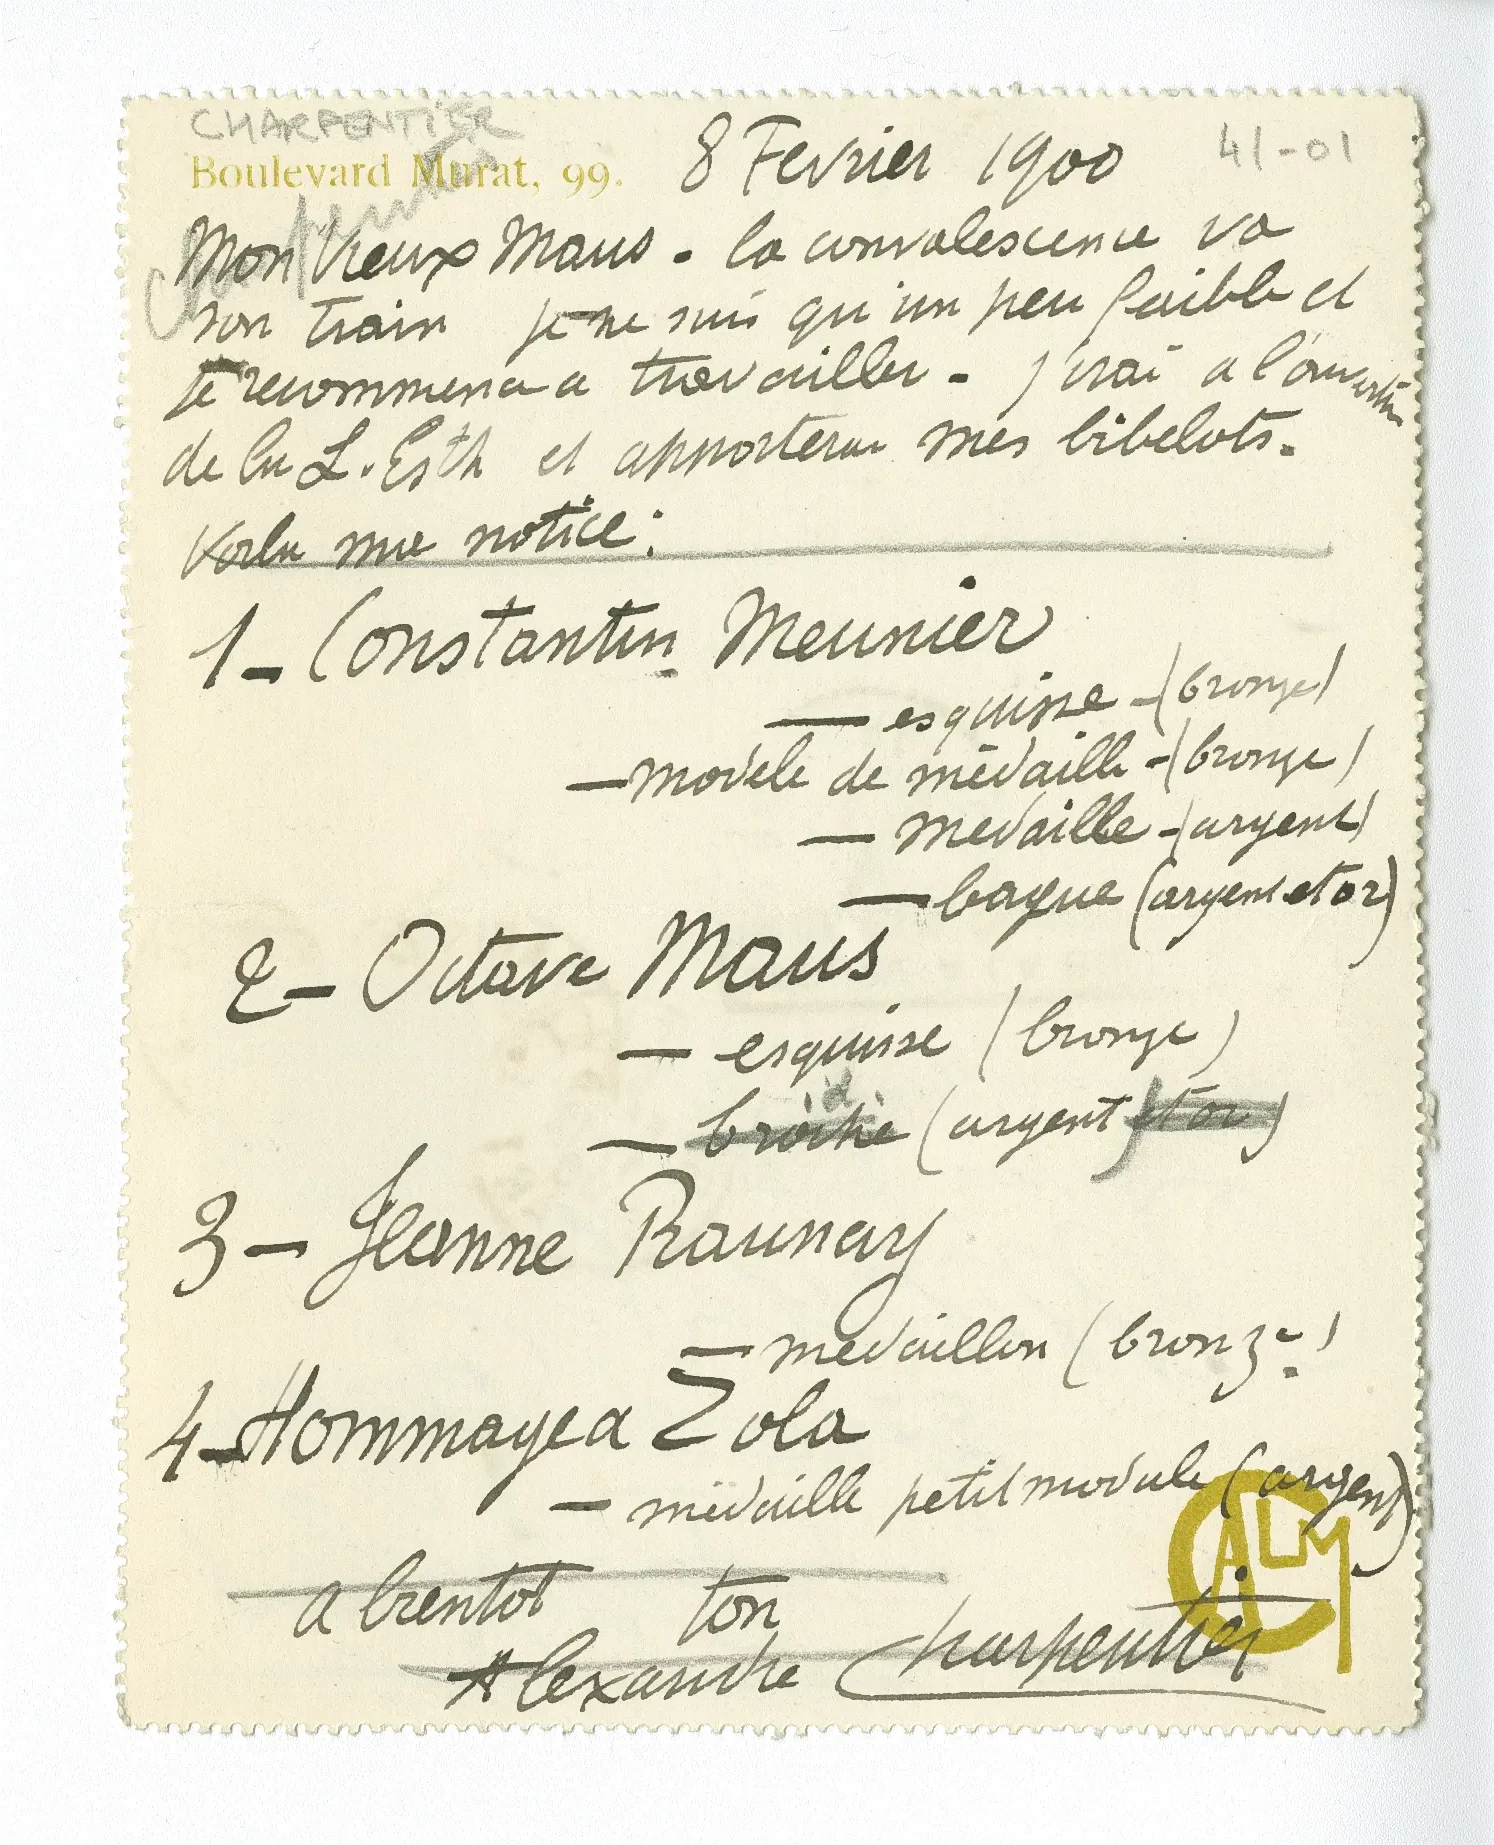 CHARPENTIER
Boulevard Murat, 99.
8 Fevrier 1900
41-01
Mon Vieux Maus - la convalescence va
son train je ne suis qu'un peu faible et
je recommence a travailler - j'irai a l'ouverture
de la L. Esth et apporterai mes bibelots.
Voila ma notice :
1 - Constantin Meunier
— esquisse - (bronze)
— modele de médaille - (bronze)
— medaille - (argent)
— bague (argent et or)
2 - Octave Maus
— esquisse (bronze)
— broche (argent) et or)
3 - Jeanne Raunay
— medaillon (bronze)
4 - Hommage a Zola
— médaille petit module (argent)
a bientot ton
Alexandre Charpentier